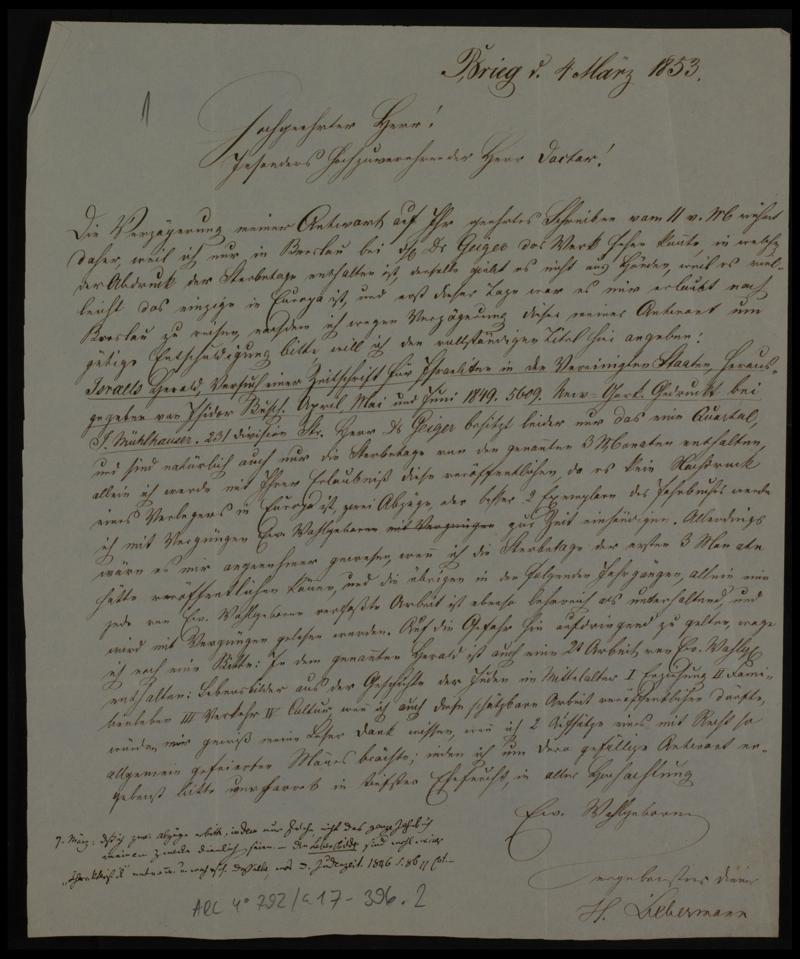 1
Brieg d. 4 März 1853.
Hochgeehrter Herr!
Besonders hochzuverehrender Herr Doctor!
Die Verzögerung meiner Antwort auf Ihr geehrtes Schreiben vom 11 v. M rührt
daher, weil ich nur in Breslau bei Dr Geiger das Werk sehen konte, in welchem
der Abdruck der Sterbetage enthalten ist, derselbe giebt es nicht aus Händen, weil es viel-
leicht das einzige in Europa ist, und erst dieser Tage war es mir erlaubt nach
Breslau zu reisen, nachdem ich wegen Verzögerung dieser meiner Antwort um
gütige Entschuldigung bitte, will ich den vollständigen Titel hier angeben:
Israels Herald, Versuch einer Zeitschrift für Israeliten in den Vereinigten Staaten, heraus-
gegeben von Isidor Busch. April Mai und Juni 1849. 5609. New-York. Gedruckt bei
J. Mühlhauser. 231 Division Str. Herr Dr Geiger besitzt leider nur das eine Quartal,
und sind natürlich auch nur die Sterbetage von den genannten 3 Monaten enthalten,
allein ich werde mit Ihrer Erlaubniß diese veröffentlichen, da es kein Nachdruck
eines Verlegers in Europa ist, zwei Abzüge, oder besser 2 Exemplare des Jahrbuchs werde
ich mit Vergnügen Ew Wohlgeboren mit Vergnügen zur Zeit einhändigen. Allerdings
wäre es mir angenehmer gewesen, wenn ich die Sterbetage der ersten 3 Monate
hätte veröffentlichen könen, und die übrigen in den folgenden Jahrgängen, allein eine
jede von Ew. Wohlgeboren verfaßte Arbeit ist ebenso lehrreich als unterhaltend, und
wird mit Vergnügen gelesen werden. Auf die Gefahr hin aufdringend zu gelten, wage
ich noch eine Bitte: In dem genanten Herald ist auch eine 2t Arbeit von Ew. Wohlg
enthalten: Lebensbilder aus der Geschichte der Juden im Mittelalter I Erziehung II Fami-
lienleben III Verkehr IV Cultur, wenn ich auch diese schätzbare Arbeit veröffentlichen dürfte,
würden mir gewiß meine Leser Dank wissen, wen ich 2 Aufsätze eines mit Recht so
allgemein gefeierten Manes brächte; indem ich um dero gefällige Antwort er-
gebenst bitte verharre in tiefster Ehrfurcht, in aller Hochachtung
Ew. Wohlgeboren
ergebenster Diener
H. Liebermann
7. März: zwei Abzüge erbitte, indem nur solche, nicht das ganze Jahrbuch
meinem Zwecke dienlich seien. – Die Lebensbilder sind wohl meine
1846 S. 86
ARC 4° 792/G17-396.2